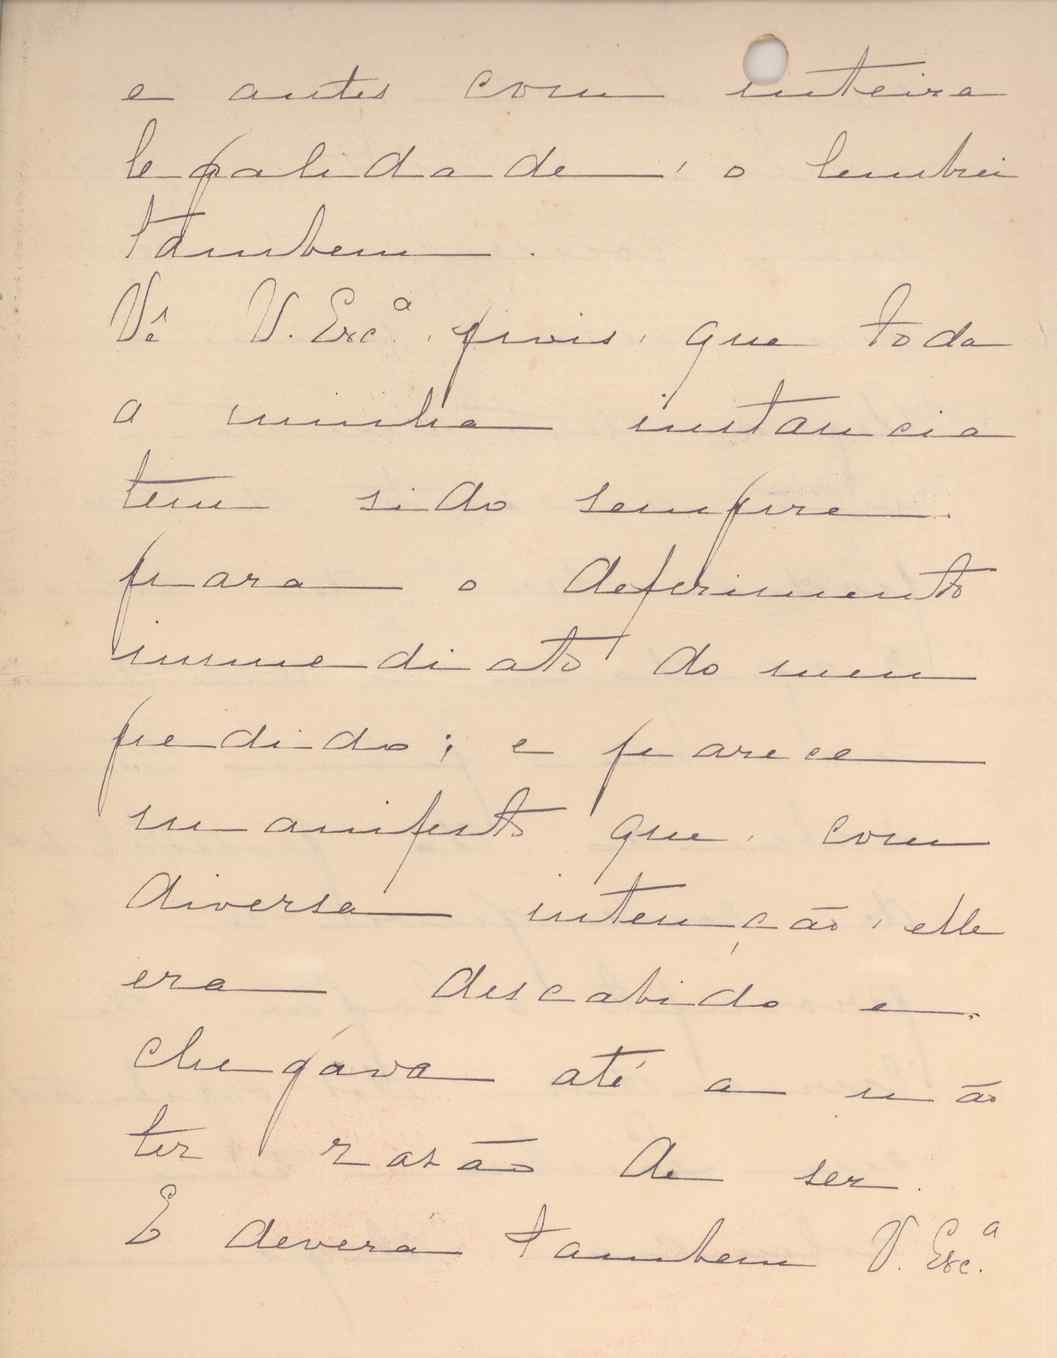 e antes com inteira
legalidade, o lembrei
tambem.
Vê V. Exc.ª, pois, que toda
a minha instancia
tem sido sempre
para o deferimento
immediato do meu
pedido; e parece
manifesto que, com
diversa intenção, elle
era descabido e
chegava até a não
ter rasão de ser.
E deverá tambem V. Exc.ª